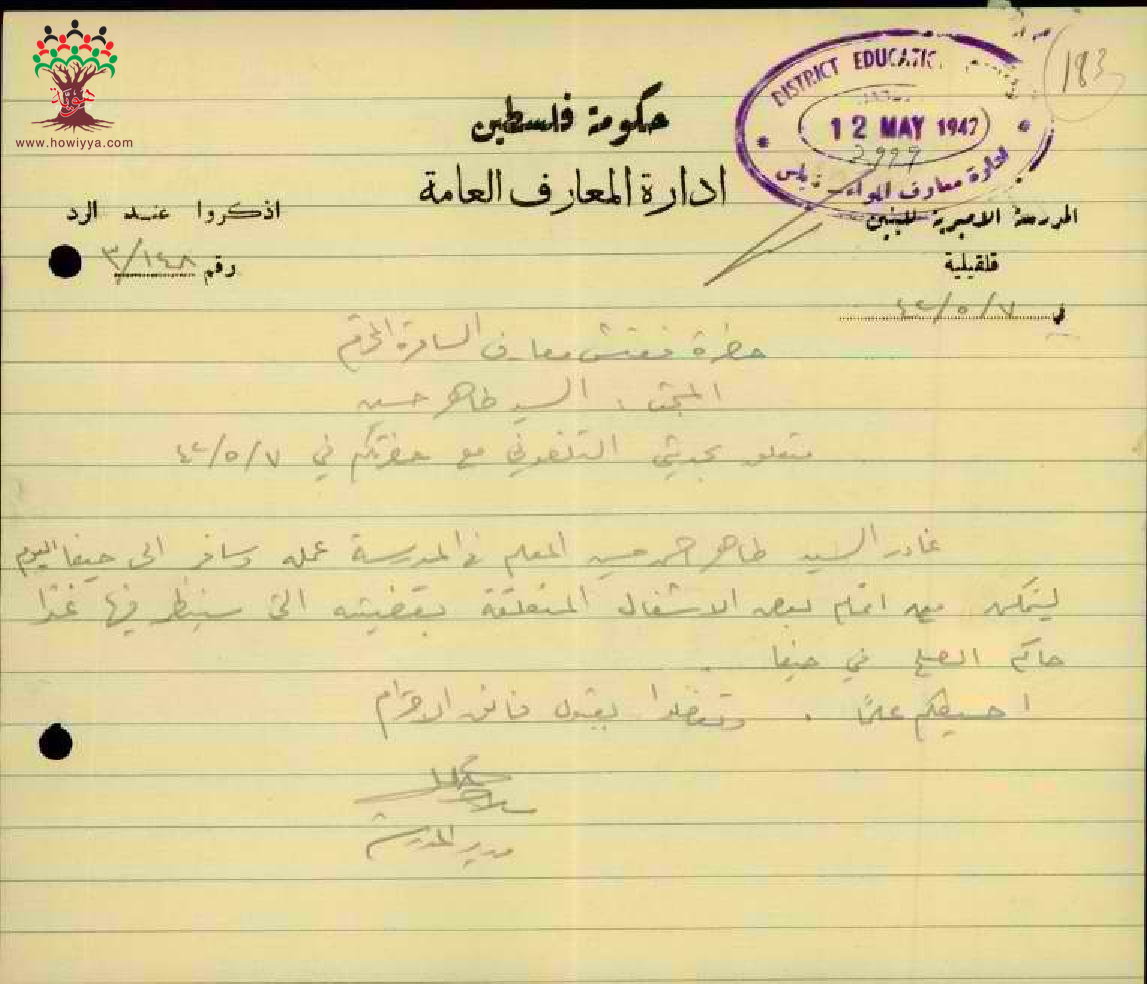 www.howiyya.com
183
DISTRICT EDUCATI
12 MAY 1947
2999
ادارة معارف لواء نابلس
حكومة فلسطين
ادارة المعارف العامة
المدرسة الاميرية للبنين
قلقيلية
٤٧/٥/٧
اذكروا عند الرد
رقم ٣/١٤٨
حضرة مفتش معارف السامرة المحترم
المبحث: السيد طاهر حسين
متعلق بحديثي التلفوني مع حضرتكم في ٤٧/٥/٧
غادر السيد طاهر احمد حسين المعلم في المدرسة عمله وسافر الى حيفا اليوم
ليتمكن من اتمام بعض الاشغال المتعلقة بقضيته التي سينظر فيها غدًا
حاكم الصلح في حيفا.
احيطكم علمًا. وتفضلوا بقبول فائق الاحترام
مدير المدرسة